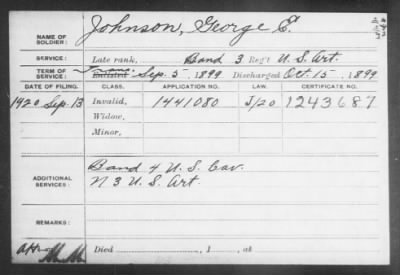 NAME OF SOLDIER: Johnson, George E.
SERVICE: Late rank, Band 3 Reg't U. S. Art.
TERM OF SERVICE: Enlisted Sep. 5, 1899 Discharged Oct. 15, 1899
DATE OF FILING. CLASS. APPLICATION NO. LAW. CERTIFICATE NO.
1920 Sep. 13 Invalid, 1441080 J/20 1243687
Widow,
Minor,
ADDITIONAL SERVICES: Band 4 U. S. Cav.
N 3 U. S. Art.
REMARKS:
Died , 1 , at